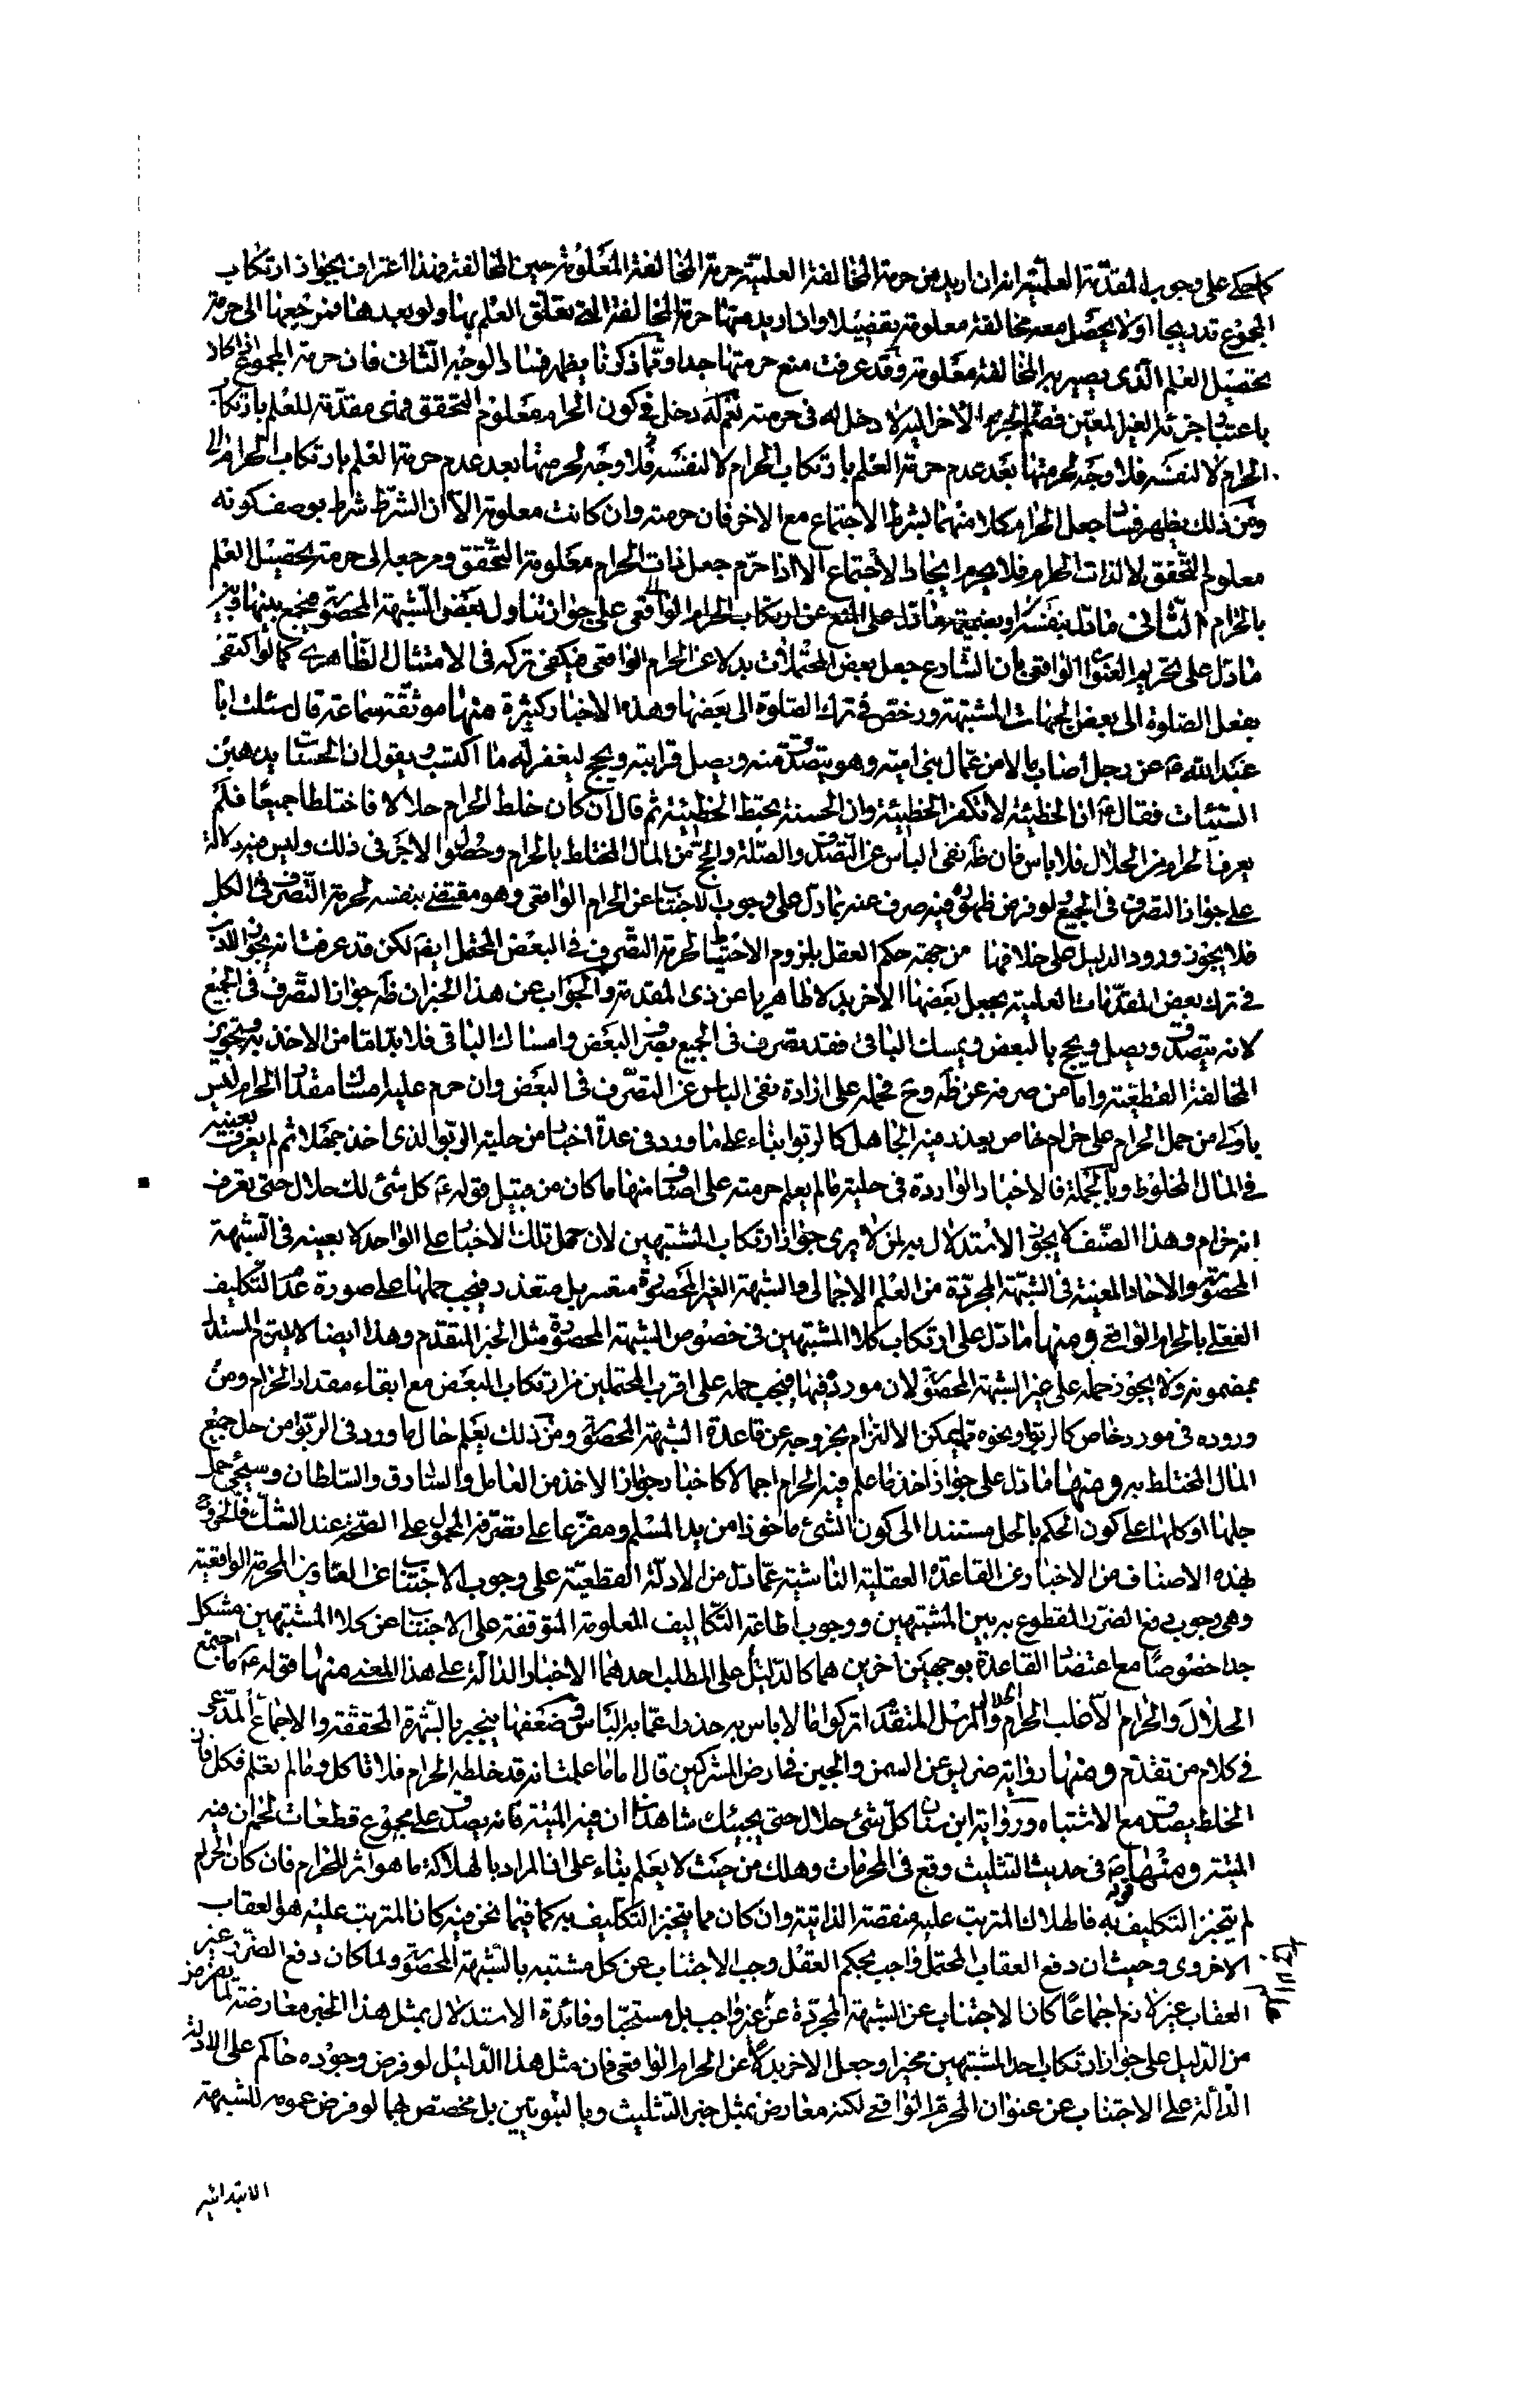 كما حكى على وجوب المقدمة العلمية انه ان اريد من حرمة المخالفة العلمية حرمة المخالفة المعلومة حين المخالفة فهذا اعتراف بجواز ارتكاب
المجموع تدريجا او لا يحصل معه مخالفة معلومة تفصيلا وان اريد منها حرمة المخالفة التي تعلق العلم بها ولو بعدها فمرجعها الى حرمة
تحصيل العلم الذى يصير به المخالفة معلومة وقد عرفت منع حرمتها جدا ومما ذكرنا يظهر فساد الوجه الثانى فان حرمة المجموع اذا كان
باعتبار جزئه الغير المعين فضم الجزء الاخر اليه لا دخل له فى حرمته نعم له دخل فى كون الحرام معلوم التحقق فهى مقدمة للعلم بارتكاب
الحرام لا لنفسه فلا وجه لحرمتها بعد عدم حرمة العلم بارتكاب الحرام لا لنفسه فلا وجه لحرمتها بعد عدم حرمة العلم بارتكاب الحرام
ومن ذلك يظهر فساد جعل الحرام كلا منهما بشرط الاجتماع مع الاخر فان حرمته وان كانت معلومة الا ان الشرط شرط بوصف كونه
معلوم التحقق لا لذات الحرام فلا يحرم ايجاد الاجتماع الا اذا حرم جعل ذات الحرام معلومة التحقق ومرجعه الى حرمة تحصيل العلم
بالحرام الثانى ما دل بنفسه او بضميمة ما دل على المنع عن ارتكاب الحرام الواقعى على جواز تناول بعض الشبهة المحصورة فيجمع بينه وبين
ما دل على تحريم العنوان الواقعى بان الشارع جعل بعض المحتملات بدلا عن الحرام الواقعى فيكفى تركه فى الامتثال الظاهرى كما لو اكتفى
بفعل الصلوة الى بعض الجهات المشتبهة ورخص فى ترك الصلوة الى بعضها وهذه الاخبار كثيرة منها موثقة سماعة قال سئلت ابا
عبد الله ع عن رجل اصاب مالا من عمال بنى امية وهو يتصدق منه ويصل قرابته ويحج ليغفر له ما اكتسب ويقول ان الحسنات يذهبن
السيئات فقال ع ان الخطيئة لا تكفر الخطيئة وان الحسنة تحبط الخطيئة ثم قال ان كان خلط الحرام حلالا فاختلطا جميعا فلم
يعرف الحرام من الحلال فلا باس فان ظه نفى الباس عن التصدق والصلة والحج من المال المختلط بالحرام وحصول الاجر فى ذلك وليس فيه دلالة
على جواز التصرف فى الجميع ولو فرض ظهوره فيه صرف عنه بما دل على وجوب الاجتناب عن الحرام الواقعى وهو مقتضى بنفسه لحرمة التصرف فى الكل
فلا يجوز ورود الدليل على خلافها من جهة حكم العقل بلزوم الاحتياط لحرمة التصرف فى البعض المحتمل ايضا لكن قد عرفت انه يجوز الاذن
فى ترك بعض المقدمات العلمية بجعل بعضها الاخر بدلا ظاهريا عن ذى المقدمة والجواب عن هذا الخبر ان ظه جواز التصرف فى الجميع
لانه يتصدق ويصل ويحج بالبعض ويمسك الباقى فقد تصرف فى الجميع بصرف البعض وامساك الباقى فلا بد اما من الاخذ به وتجويز
المخالفة القطعية واما من صرفه عن ظه وح فحمله على ارادة نفى الباس عن التصرف فى البعض وان حرم عليه امساك مقدار الحرام ليس
باولى من حمل الحرام على حرام خاص يعذر فيه الجاهل كالربوا بناء على ما ورد فى عدة اخبار من حلية الربوا الذى اخذ جهلا ثم لم يعرف بعينه
فى المال المخلوط وبالجملة فالاخبار الواردة فى حلية ما لم يعلم حرمته على اصناف منها ما كان من قبيل قوله ع كل شئ لك حلال حتى تعرف
انه حرام وهذا الصنف لا يجوز الاستدلال به لمن لا يرى جواز ارتكاب المشتبهين لان حمل تلك الاخبار على الواحد لا بعينه فى الشبهة
المحصورة والاحاد المعينة فى الشبهة المجردة من العلم الاجمالى والشبهة الغير المحصورة متعسر بل متعذر فيجب حملها على صورة عدم التكليف
الفعلى بالحرام الواقعى ومنها ما دل على ارتكاب كلا المشتبهين فى خصوص الشبهة المحصورة مثل الخبر المتقدم وهذا ايضا لا يلتزم المستدل
بمضمونه ولا يجوز حمله على غير الشبهة المحصورة لان مورده فيها فيجب حمله على اقرب المحتملين من ارتكاب البعض مع ابقاء مقدار الحرام ومن
وروده فى مورد خاص كالربوا ونحوه مما يمكن الالتزام بخروجه عن قاعدة الشبهة المحصورة ومن ذلك يعلم حال ما ورد فى الربوا من حل جميع
المال المختلط به ومنها ما دل على جواز اخذ ما علم فيه الحرام اجمالا كاخبار جواز الاخذ من العامل والسارق والسلطان وسيجئ حمل
جلها او كلها على كون الحكم بالحل مستندا الى كون الشئ ماخوذا من يد المسلم ومتفرعا على تصرفه المحمول على الصحة عند الشك فالخروج
بهذه الاصناف من الاخبار عن القاعدة العقلية الناشية عما دل من الادلة القطعية على وجوب الاجتناب عن العناوين المحرمة الواقعية
وهى وجوب دفع الضرر المقطوع به بين المشتبهين ووجوب اطاعة التكاليف المعلومة المتوقفة على الاجتناب عن كلا المشتبهين مشكل
جدا خصوصا مع اعتضاد القاعدة بوجهين اخرين هما كالدليل على المطلب احدهما الاخبار الدالة على هذا المعنى منها قوله ع ما اجتمع
الحلال والحرام الا غلب الحرام الحلال والمرسل المتقدم اتركوا ما لا باس به حذرا عما به الباس وضعفها ينجبر بالشهرة المحققة والاجماع المدعى
فى كلام من تقدم ومنها رواية ضريس عن السمن والجبن فى ارض المشركين قال اما ما علمت انه قد خلطه الحرام فلا تاكل وما لم تعلم فكل فان
الخلط يصدق مع الاشتباه ورواية ابن سنان كل شئ حلال حتى يجيئك شاهدان ان فيه الميتة فانه يصدق على مجموع قطعات لحم ان فيه
الميتة ومنها قوله ص فى حديث التثليث وقع فى المحرمات وهلك من حيث لا يعلم بناء على ان المراد بالهلاكة ما هو اثر للحرام فان كان الحرام
لم يتنجز التكليف به فالهلاك المترتب عليه منقصته الذاتية وان كان مما يتنجز التكليف به كما فيما نحن فيه كان المترتب عليه هو العقاب
الاخروى وحيث ان دفع العقاب المحتمل واجب بحكم العقل وجب الاجتناب عن كل مشتبه بالشبهة المحصورة ولما كان دفع الضرر غير
العقاب غير لازم اجماعا كان الاجتناب عن الشبهة المجردة غير واجب بل مستحبا وفائدة الاستدلال بمثل هذا الخبر معارضته لما يفرض
من الدليل على جواز ارتكاب احد المشتبهين مخيرا وجعل الاخر بدلا عن الحرام الواقعى فان مثل هذا الدليل لو فرض وجوده حاكم على الادلة
الدالة على الاجتناب عن عنوان المحرم الواقعى لكنه معارض بمثل خبر التثليث وبالنبويين بل مخصص بهما لو فرض عمومه للشبهة
الابتدائية